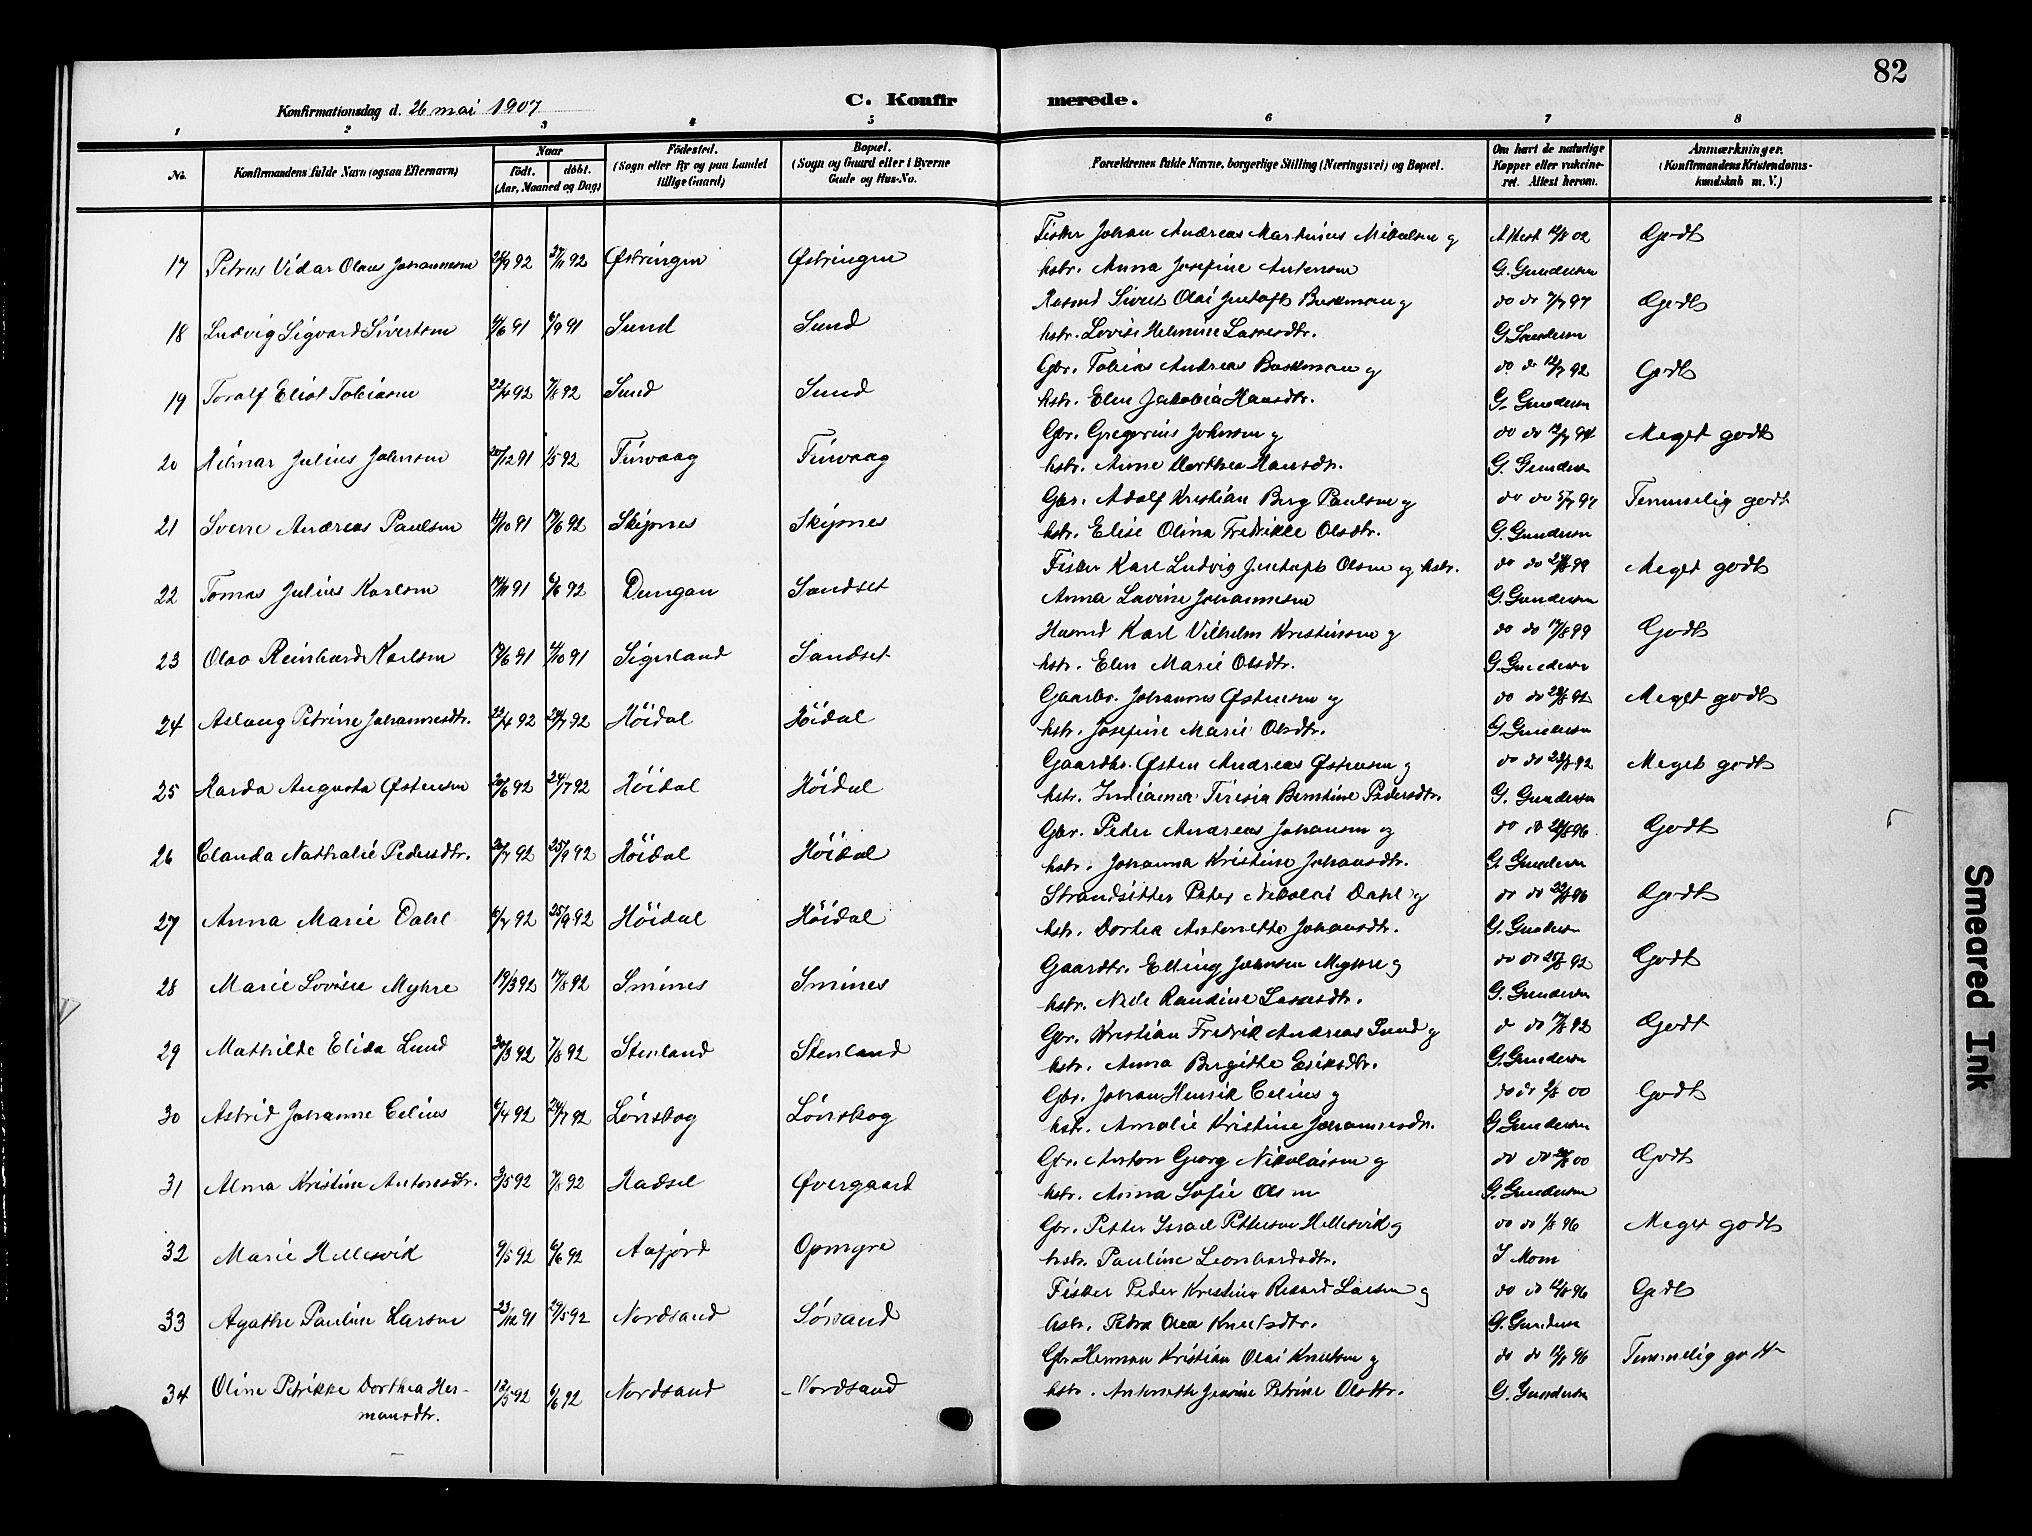 82
Konfirmationsdag d. 26 mai 1907
C. Konfirmerede.
1 2 3 4 5 6 7 8
No. Konfirmandens fulde Navn (ogsaa Efternavn)
Naar født. døbt. (Aar, Maaned og Dag)
Fødested. (Sogn eller By og paa Landet tillige Gaard)
Bopæl. (Sogn og Gaard eller i Byerne Gade og Hus-No.
Forældrenes fulde Navne, borgerlige Stilling (Næringsvei) og Bopæl.
Om havt de naturlige Kopper eller vakcineret. Attest herom.
Anmærkninger. (Konfirmandens Kristendomskundskab m. V.)
Fisker Johan Andreas Martinius Mikalsen og Attest 12/8 02 Godt
17 Petrus Vidar Olaus Johannesen 92 27/11 92 Østringen Østringen hstr. Anna Josefine Antonsen G. Gundersen
Sivert Olai Gustaft Buckman og do do 7/7 97 Godt
18 Ludvig Sigvard Sivertsen 4/6 91 6/9 91 Sund Sund hstr. Lovise Helmine Lassesdtr. G. Gundersen
Gbr. Tobias Andreas Buckman og do do 12/7 92 Godt
19 Toralf Eliot Tobiasen 22/4 92 7/8 92 Sund Sund hstr. Elen Jakobia Hansdtr. G. Gundersen
Gbr. Gregorius Johnsen og do do 94 Meget godt
20 Hilmar Julius Johnsen 20/12 91 1/5 92 Finvaag Finvaag hstr. Anne Dorthea Hansdtr. G. Gundersen
Gbr. Adolf Kristian Berg Paulsen og do do 97 Temmelig godt
21 Sverre Andreas Paulsen 12/10 91 19/6 92 Skipnes Skipnes hstr. Elise Olina Fredrikke Olsdtr. G. Gundersen
Fisker Karl Ludvig Gustaft Olsen og hstr. do do 99 Meget godt
22 Tomas Julius Karlsen 17/11 91 6/6 92 Dungan Sandset Anna Lavine Johannesen G. Gundersen
Husmd Karl Vilhelm Kristensen og do do 17/8 99 Godt
23 Olao Reinhard Karlsen 19/6 91 4/10 91 Sigerland Sandset hstr. Elen Marie Olsdtr. G. Gundersen
Gaardbr. Johannes Østensen og do do 92 Meget godt
24 Aslaug Petrine Johannesdtr. 23/4 92 24/7 92 Höidal Höidal hstr. Josefine Marie Olsdtr. G. Gundersen
Gaardbr. Østen Andreas Østensen og do do 92 Meget godt
25 Harda Augusta Østensen 20/6 92 24/7 92 Höidal Höidal hstr. Indianna Tiresia Berntine Pedersdtr. G. Gundersen
Gbr. Peder Andreas Johansen og do do 96 Godt
26 Clauda Nathalie Pedersdtr. 20/7 92 25/9 92 Höidal Höidal hstr. Johanna Kristine Johansdtr. G. Gundersen
Strandsitter Peter Nikolai Dahl og do do 96 Godt
27 Anna Marie Dahl 6/7 92 25/9 92 Höidal Höidal hstr. Dortea Antonette Johansdtr. G. Gundersen
Gaardbr. Elling Johnsen Myhre og do do 92 Godt
28 Marie Lovise Myhre 19/3 92 17/8 92 Smines Smines hstr. Nele Randine Lassesdtr. G. Gundersen
Gbr. Kristian Fredrik Andreas Lund og do do 92 Godt
29 Mathilde Elida Lund 30/3 92 7/8 92 Stenland Stenland hstr. Anna Birgitte Eriksdtr. G. Gundersen
Gbr. Johan Henrik Celius og do do 00 Godt
30 Astrid Johanne Celius 6/4 92 24/7 92 Lønskog Lønskog hstr. Amalie Kristine Johannesdtr. G. Gundersen
Gbr. Anton Georg Nikolaisen og do do 00 Godt
31 Alma Kristine Antonsdtr. 3/5 92 7/8 92 Hadsel Øvergaard hstr. Anna Sofie Olsen G. Gundersen
Gbr. Petter Israel Pettersen Hellesvik og do do 1/8 96 Meget godt
32 Marie Hellesvik 9/5 92 6/6 92 Aafjord Opmyre hstr. Pauline Leonhardsdtr. J Mom
Fisker Peder Kristian Rikard Larsen og do do 12/8 96 Godt
33 Agathe Pauline Larsen 23/12 91 29/5 92 Nordsand Sørsand hstr. Petra Olea Knutsdtr. G. Gundersen
Gbr Herman Kristian Olai Knutsen og do do 12/8 96 Temmelig godt
34 Oline Petrikke Dorthea Her- 12/5 92 6/6 92 Nordsand Nordsand hstr. Antonette Jensine Petrine Olsdtr. G. Gundersen
mansdtr.
Smeared Ink